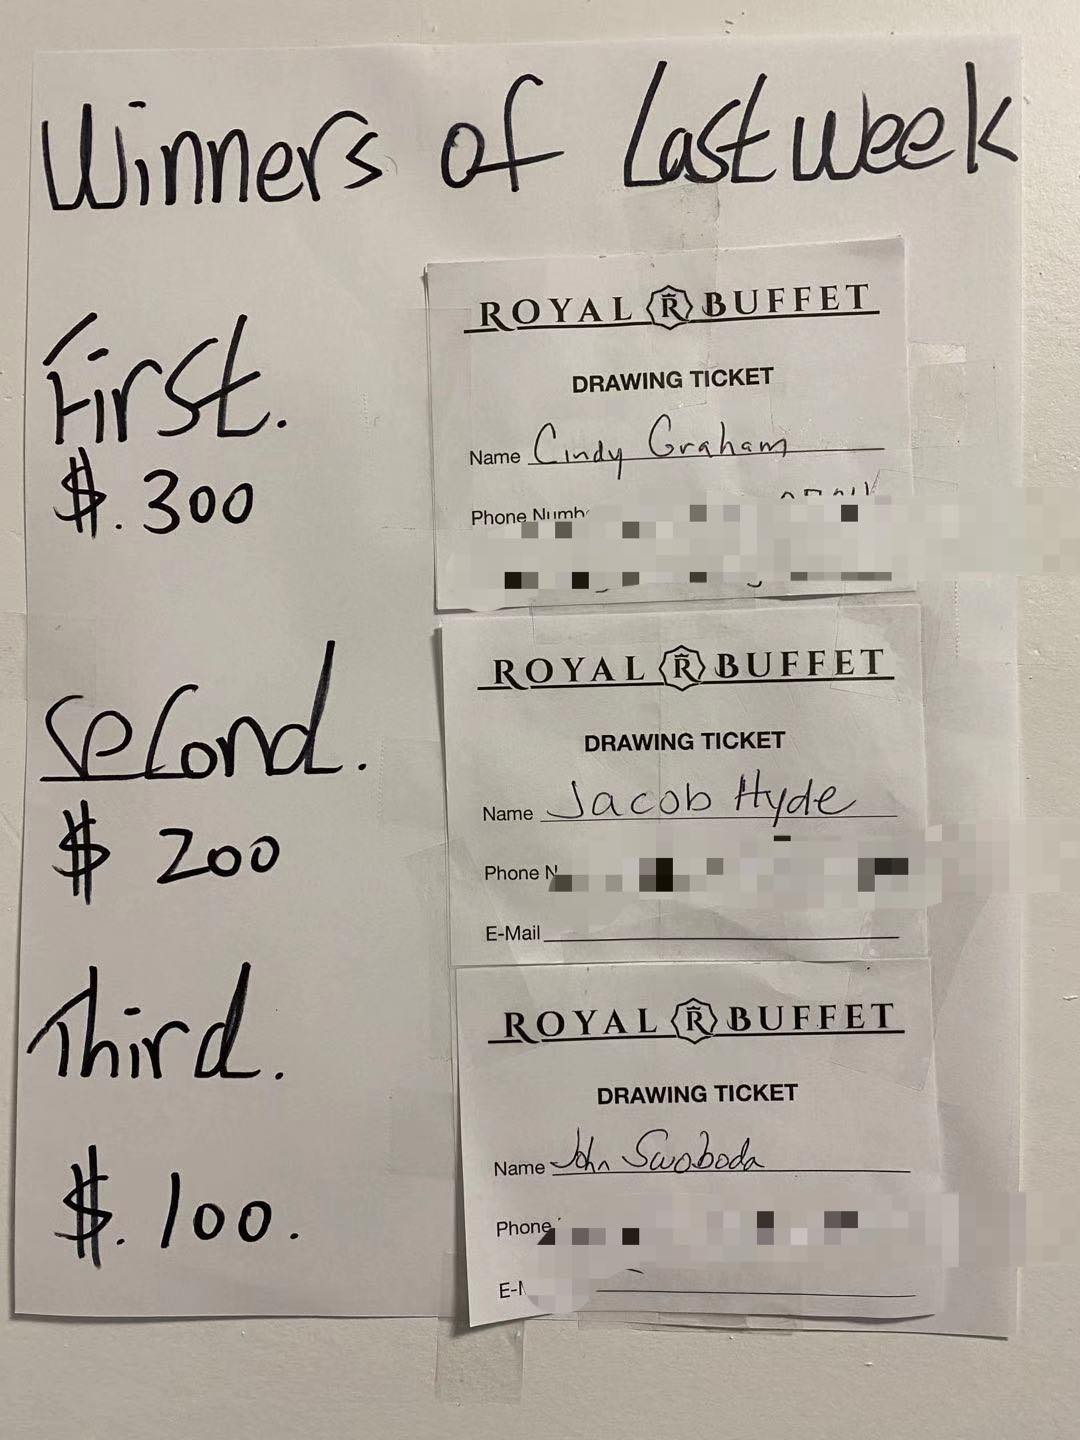 Winners of Last Week
First.
$. 300
ROYAL R BUFFET
DRAWING TICKET
Name Cindy Graham
Phone
Second.
$ 200
ROYAL R BUFFET
DRAWING TICKET
Name Jacob Hyde
Phone
E-Mail
Third.
$. 100.
ROYAL R BUFFET
DRAWING TICKET
Name John Swoboda
Phone